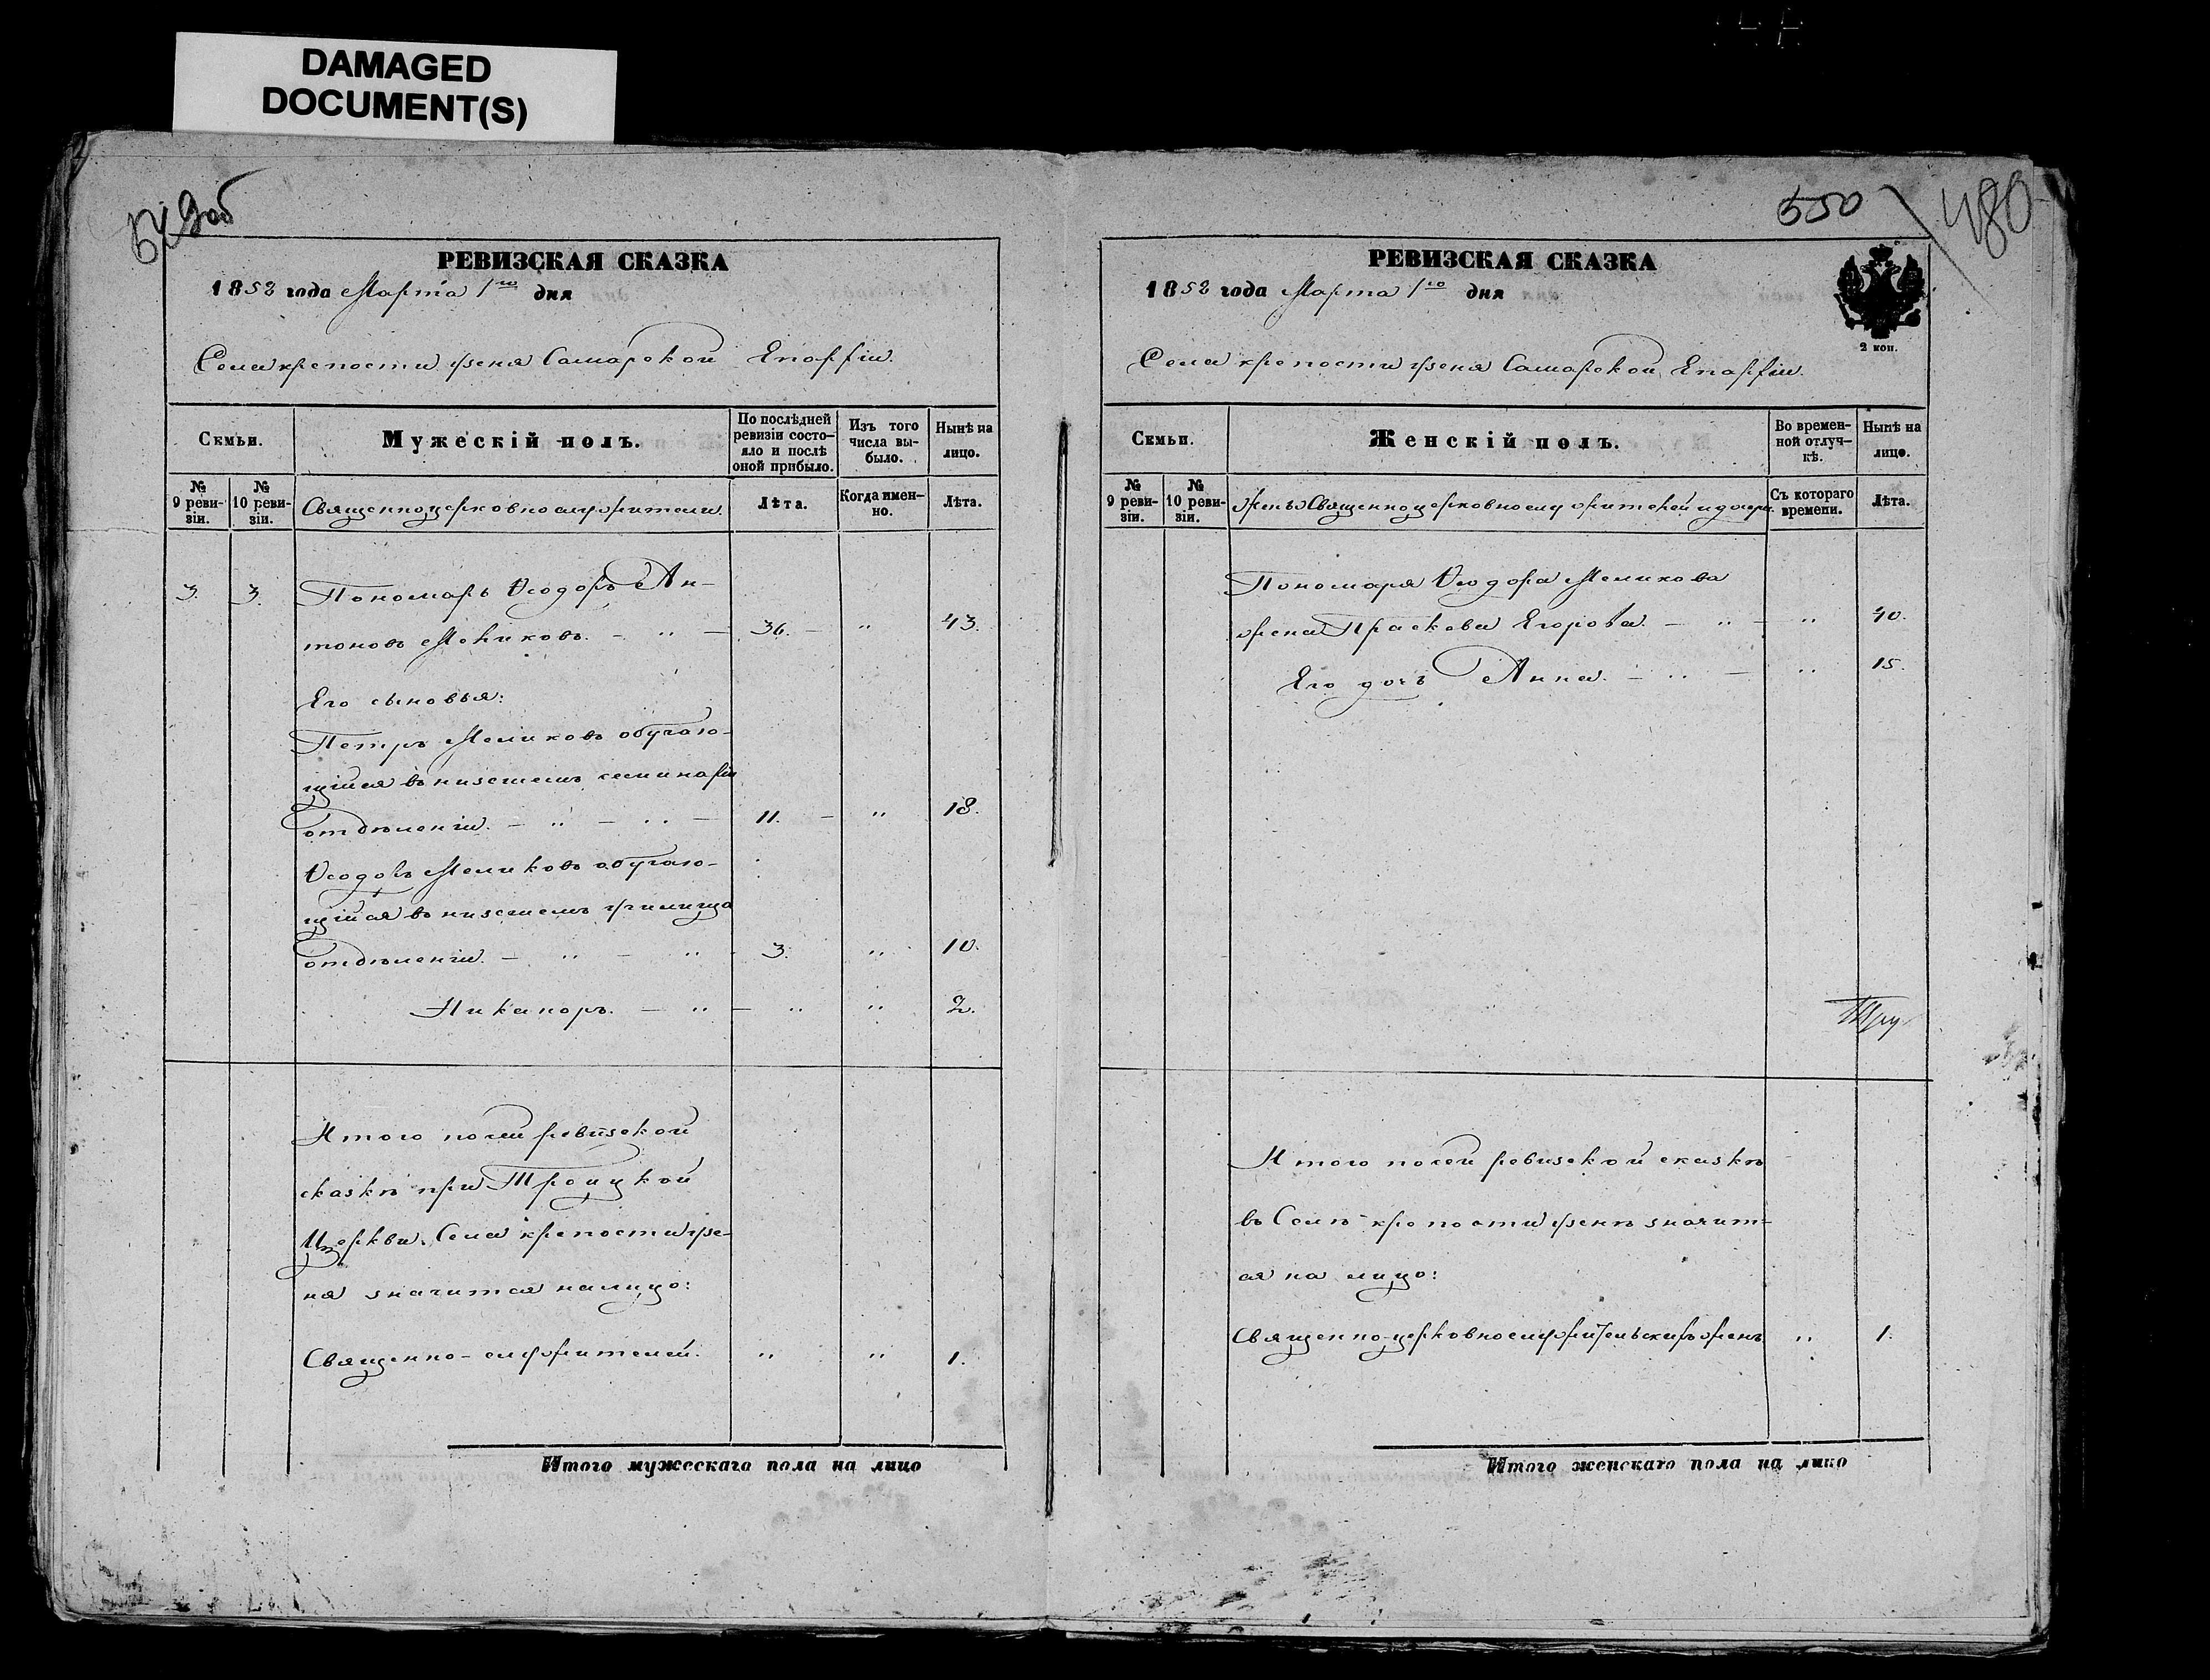 DAMAGED
DOCUMENT(S)
549об
РЕВИЗСКАЯ СКАЗКА
1858 года Марта 1го дня
Села крепости Узеня Самарской Епархіи.
Семьи.
Мужескій полъ.
По послѣдней ревизіи состо-яло и послѣ оной прибыло.
Изъ того числа вы-было.
Нынѣ на лицо.
№ 9 реви-зіи.
№ 10 реви-зіи.
Священноцерковнослужители.
Лѣта.
Когда имен-но.
Лѣта.
3. 3. Пономарь Ѳеодоръ Ан-
тоновъ Меликовъ. - " - 36. - " 43.
Его сыновья:
Петръ Меликовъ обучаю-
щійся въ низшемъ семинаріи
отдѣленіи. - " - " - 11. - " 18.
Ѳеодоръ Меликовъ обучаю-
щійся въ низшемъ училища
отдѣленіи. - " - " 3. " 10.
Никаноръ. - " - " " 2.
Итого по сей ревизской
сказкѣ при Троицкой
Церкви Села крепости Узе-
ня значится налицо:
Священно-служителей. " " 1.
Итого мужескаго пола на лицо
550
480
РЕВИЗСКАЯ СКАЗКА
1858 года Марта 1го дня
2 коп.
Села крепости Узеня Самарской Епархіи.
Семьи.
Женскій полъ.
Во времен-ной отлуч-кѣ.
Нынѣ на лицо.
№ 9 реви-зіи.
№ 10 реви-зіи.
жены Священноцерковнослужителей и дочери.
Съ котораго времени.
Лѣта.
Пономаря Ѳеодора Меликова
жена Праскева Егорова. - " - " 40.
Его дочь Анна. - " - " 15.
Итого по сей ревизской сказкѣ
въ Селѣ крепости Узенѣ значит-
ся на лицо:
Священно-церковнослужительскихъ женъ " 1.
Итого женскаго пола на лицо